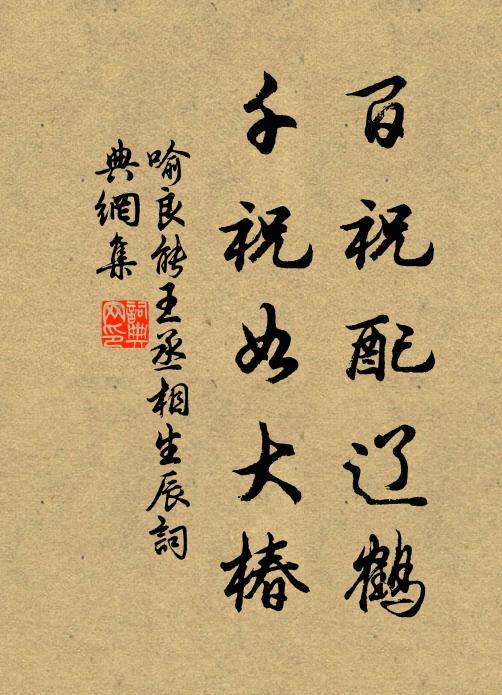 百祝配辽鹤
千祝如大椿
喻良能王丞相生辰詞
典網集
詞典網印